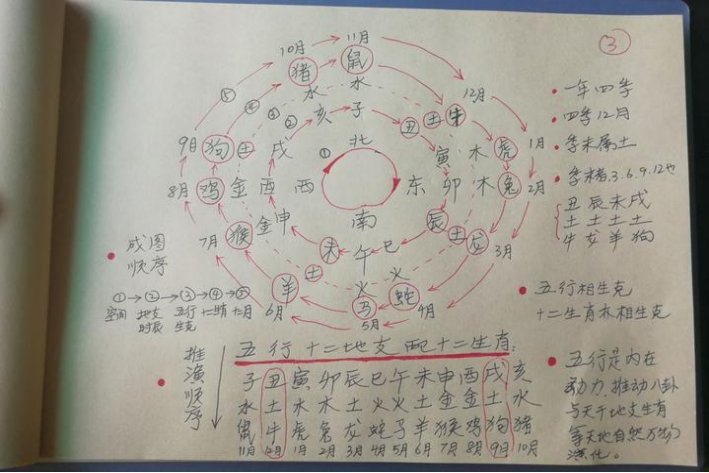 ③
10月 11月
猪 鼠
水 水
12月
⑤ ④ ③ ②
亥 子
丑 土 牛
9月 狗 土 戌
① 北
寅 木 虎 1月
8月 鸡 金 酉 西
东 卯 木 兔 2月
7月 猴 金 申
南
辰 土 龙 3月
未 午 巳
土 火 火
羊 马 蛇
6月 5月 4月
成图
顺序
①→②→③→④→⑤
空间 地支 五行 十二肖 十二月
时辰 生克
一年四季
四季12月
季末属土
季末指.3.6.9.12也
丑辰未戌
土土土土
牛龙羊狗
五行相生克
十二生肖亦相生克
五行是内在
动力.推动八卦
与天干地支生肖
等天地自然万物
演化。
推演顺序
五行十二地支配十二生肖:
子丑寅卯辰巳午未申酉戌亥
水土木木土火火土金金土水
鼠牛虎兔龙蛇马羊猴鸡狗猪
11月 12月 1月 2月 3月 4月 5月 6月 7月 8月 9月 10月